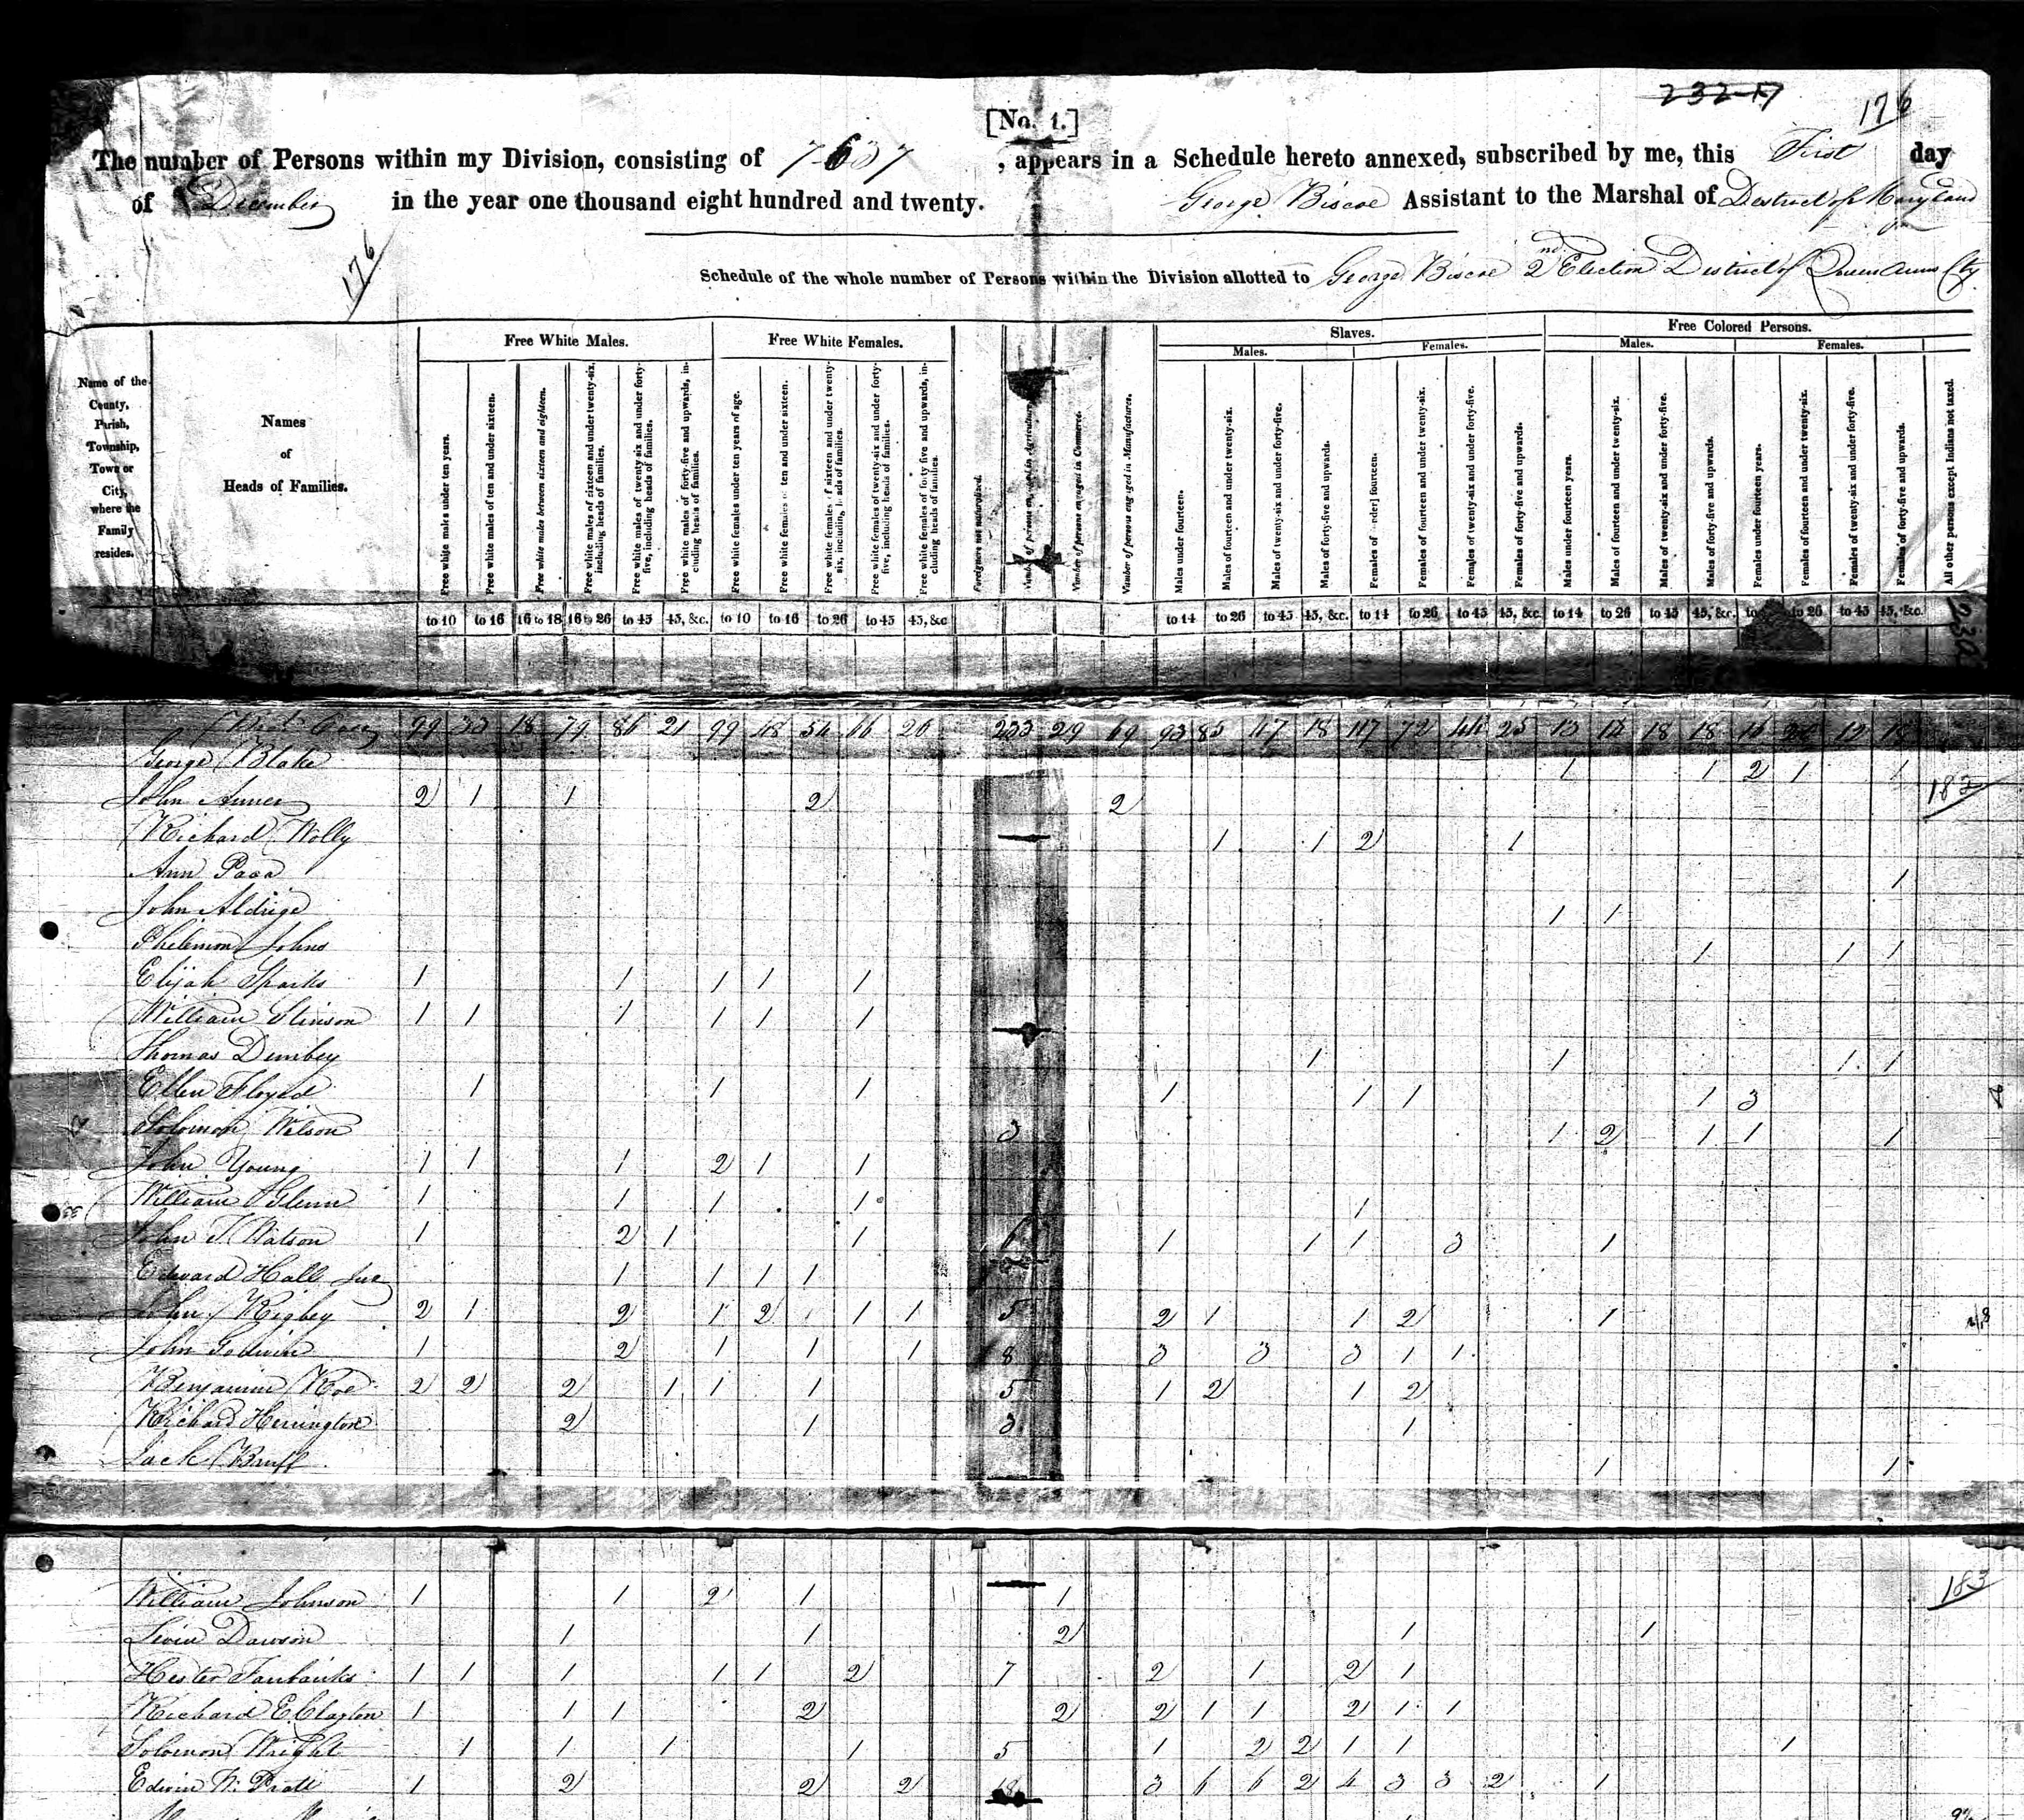 232 17
176
[No. 1.]
The number of Persons within my Division, consisting of 7637, appears in a Schedule hereto annexed, subscribed by me, this First day
of December in the year one thousand eight hundred and twenty. George Biscoe Assistant to the Marshal of District of Maryland
176
Schedule of the whole number of Persons within the Division allotted to George Biscoe 2nd Election District of Queen Anns Cty
Name of the County, Parish, Township, Town or City, where the Family resides.
Names of Heads of Families.
Free White Males.
Free white males under ten years.
Free white males of ten and under sixteen.
Free white males between sixteen and eighteen.
Free white males of sixteen and under twenty-six, including heads of families.
Free white males of twenty-six and under forty-five, including heads of families.
Free white males of forty-five and upwards, including heads of families.
Free White Females.
Free white females under ten years of age.
Free white females of ten and under sixteen.
Free white females of sixteen and under twenty-six, including heads of families.
Free white females of twenty-six and under forty-five, including heads of families.
Free white females of forty five and upwards, including heads of families.
Foreigners not naturalized.
Number of persons engaged in Agriculture.
Number of persons engaged in Commerce.
Number of persons engaged in Manufactures.
Slaves.
Males.
Males under fourteen.
Males of fourteen and under twenty-six.
Males of twenty-six and under forty-five.
Males of forty-five and upwards.
Females.
Females of fourteen.
Females of fourteen and under twenty-six.
Females of twenty-six and under forty-five.
Females of forty-five and upwards.
Free Colored Persons.
Males.
Males under fourteen years.
Males of fourteen and under twenty-six.
Males of twenty-six and under forty-five.
Males of forty-five and upwards.
Females.
Females under fourteen years.
Females of fourteen and under twenty-six.
Females of twenty-six and under forty-five.
Females of forty-five and upwards.
All other persons except Indians not taxed.
to 10 to 16 16 to 18 16 to 26 to 45 45, &c. to 10 to 16 to 26 to 45 45, &c to 14 to 26 to 45 45, &c. to 14 to 26 to 45 45, &c. to 14 to 26 to 45 45, &c. to to 26 to 45 45, &c.
99 33 18 79 86 21 99 48 54 66 26 233 29 69 93 85 47 18 117 72 44 25 13 14 18 18 12 18
George Blake 1 1 2 1 1
182
John 2 1 1 2 2
Richard Wolly 1 1 2 1
Ann Paca 1
John Aldrige 1 1
Philimon Johns 1 1 1
Elijah Sparks 1 1 1 1 1
William Stinson 1 1 1 1 1 1
Thomas Dembey 1 1 1 1
Ellen Floyed 1 1 1 1 1 1 1 3
Solomon Wilson 3 1 2 1 1 1
John Young 1 1 1 2 1 1
William Glenn 1 1 1 1 1
John T. Watson 1 2 1 1 6 1 1 1 3 1
Edward Hall 1 1 1 1
John Rigbey 2 1 2 1 2 1 1 1 5 2 1 1 2 1
John Godwin 1 2 1 1 1 8 3 3 3 1 1
Benjamin Roe 2 2 2 1 1 1 5 1 2 1 2
Richard Herrington 2 1 3 1
Jack Bruff 1 1
183
William Johnson 1 1 2 1 1
Levin Dawson 1 1 2 1 1
Hester Fairbanks 1 1 1 1 1 2 7 2 1 2 1
Richard E. Clayton 1 1 1 2 2 2 1 1 2 1 1
Solomon Wright 1 1 1 1 5 1 2 2 1 1 1
Edwin W. Pratt 1 2 2 2 18 3 6 6 2 4 3 3 2 1